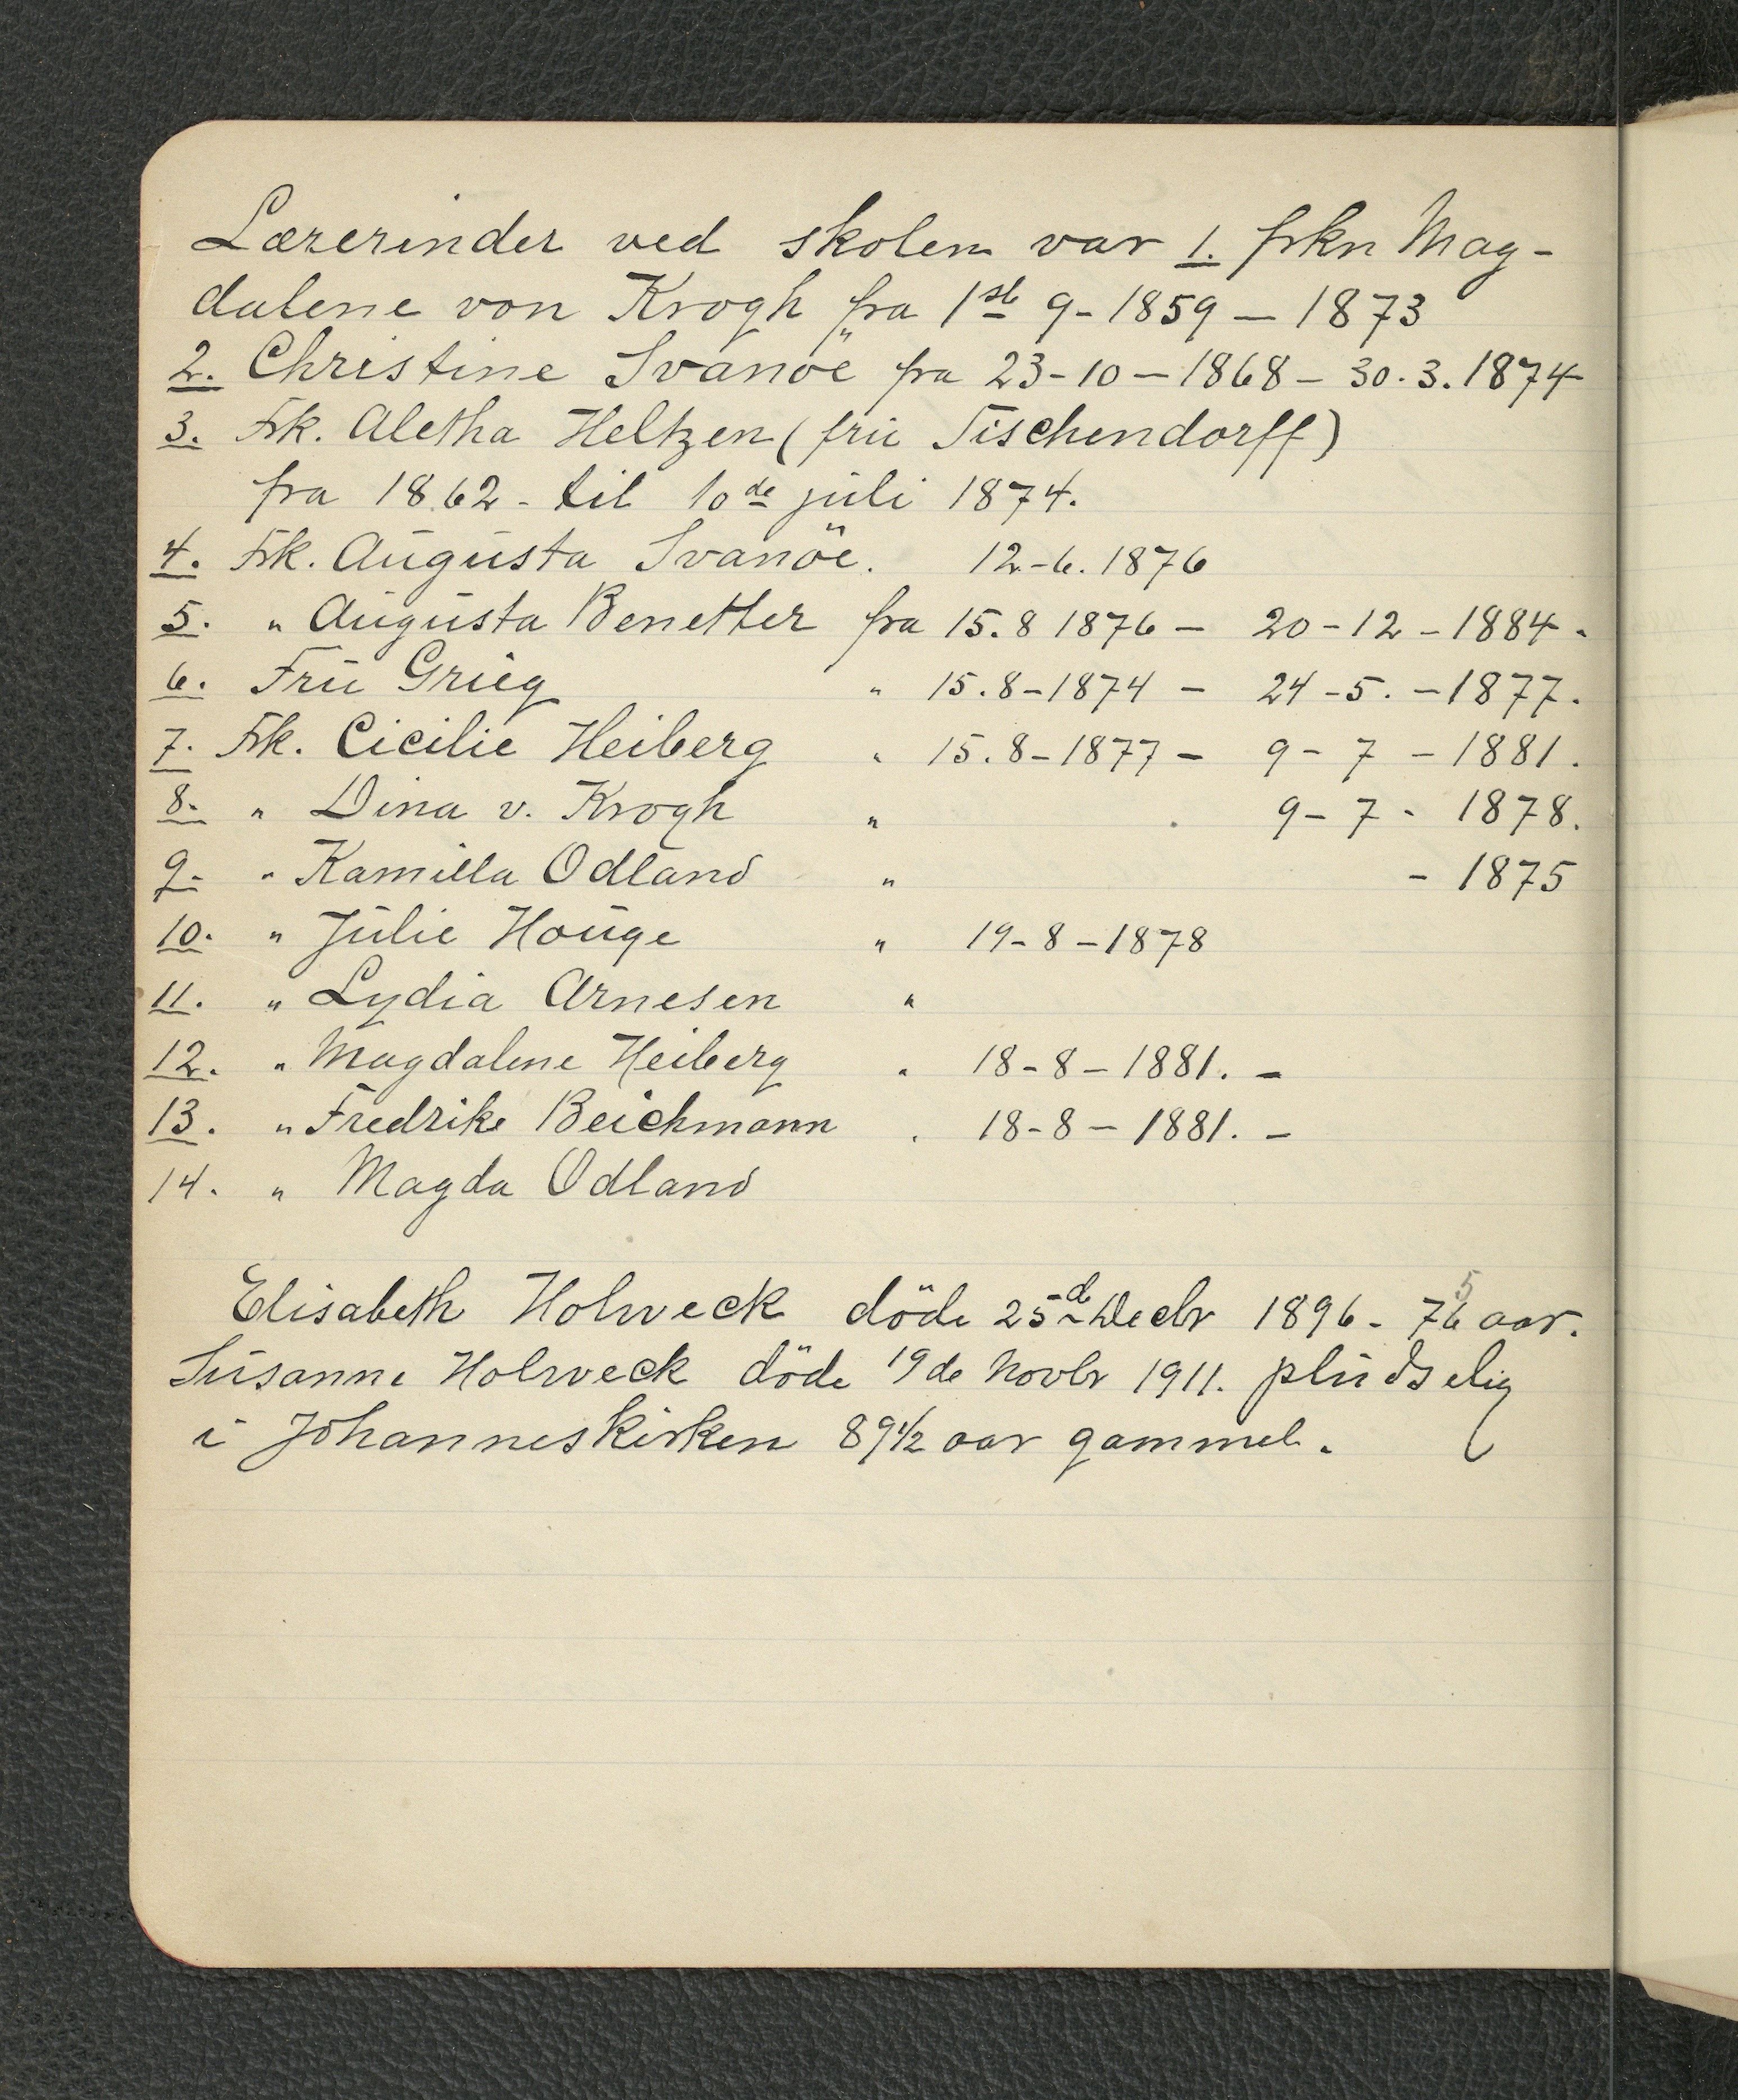 Lærerinder ved skolen var 1. frkn Mag-
dalene von Krogh fra 1ste 9-1859 — 1873
2. Christine Svanöe fra 23-10-1868 - 30.3.1874
3. Frk. Aletha Heltzen (frü Tischendorff)
fra 1862 - til 10de jüli 1874.
4. Frk. Aügüsta Svanöe. 12-6.1876
5. " Aügüsta Benetter fra 15.8 1876 - 20-12-1884.
6. Frü Grieg " 15.8-1874 - 24-5.-1877.
7. Frk. Cicilie Heiberg " 15.8-1877 - 9-7-1881.
8. " Dina v. Krogh " 9-7-1878.
9. " Kamilla Odland " - 1875
10. " Jülie Hoüge " 19-8-1878
11. " Lydia Arnesen "
12. " Magdalene Heiberg " 18-8-1881. -
13. " Fredrike Beichmann " 18-8-1881. -
14. " Magda Odland
Elisabeth Holweck döde 25de Decbr 1896 - 765 aar.
Süsanne Holweck döde 19de Novbr 1911. plüdselig
i Johanneskirken 89 1/2 aar gammel.